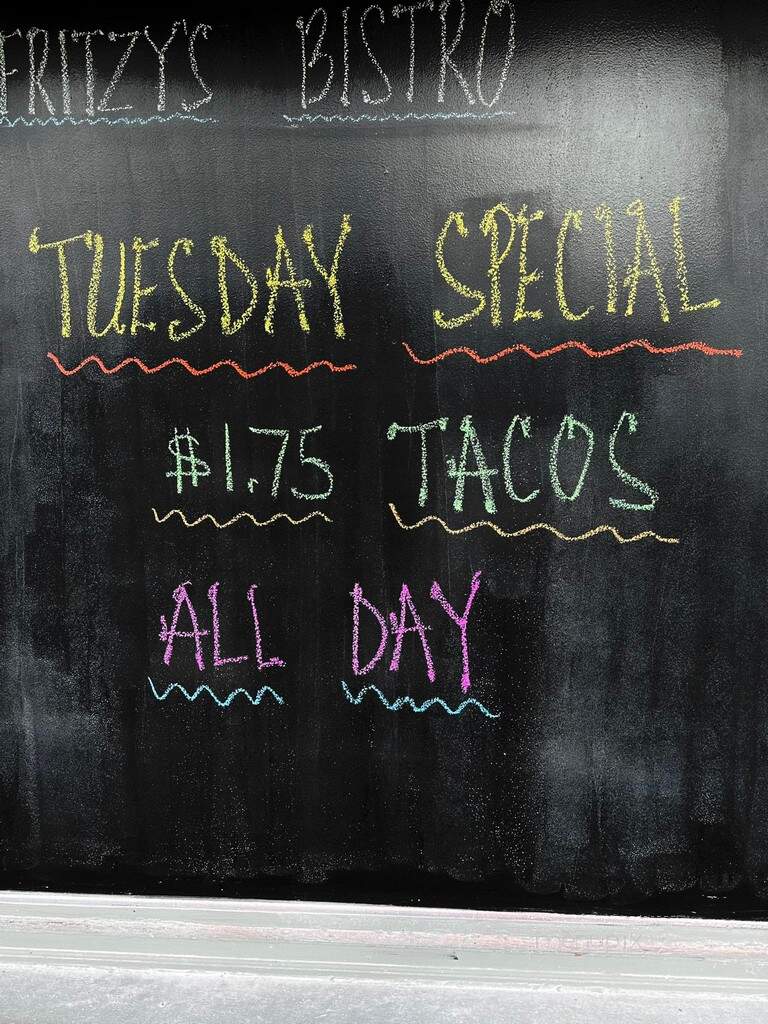 FRITZY'S BISTRO
TUESDAY SPECIAL
$1.75 TACOS
ALL DAY